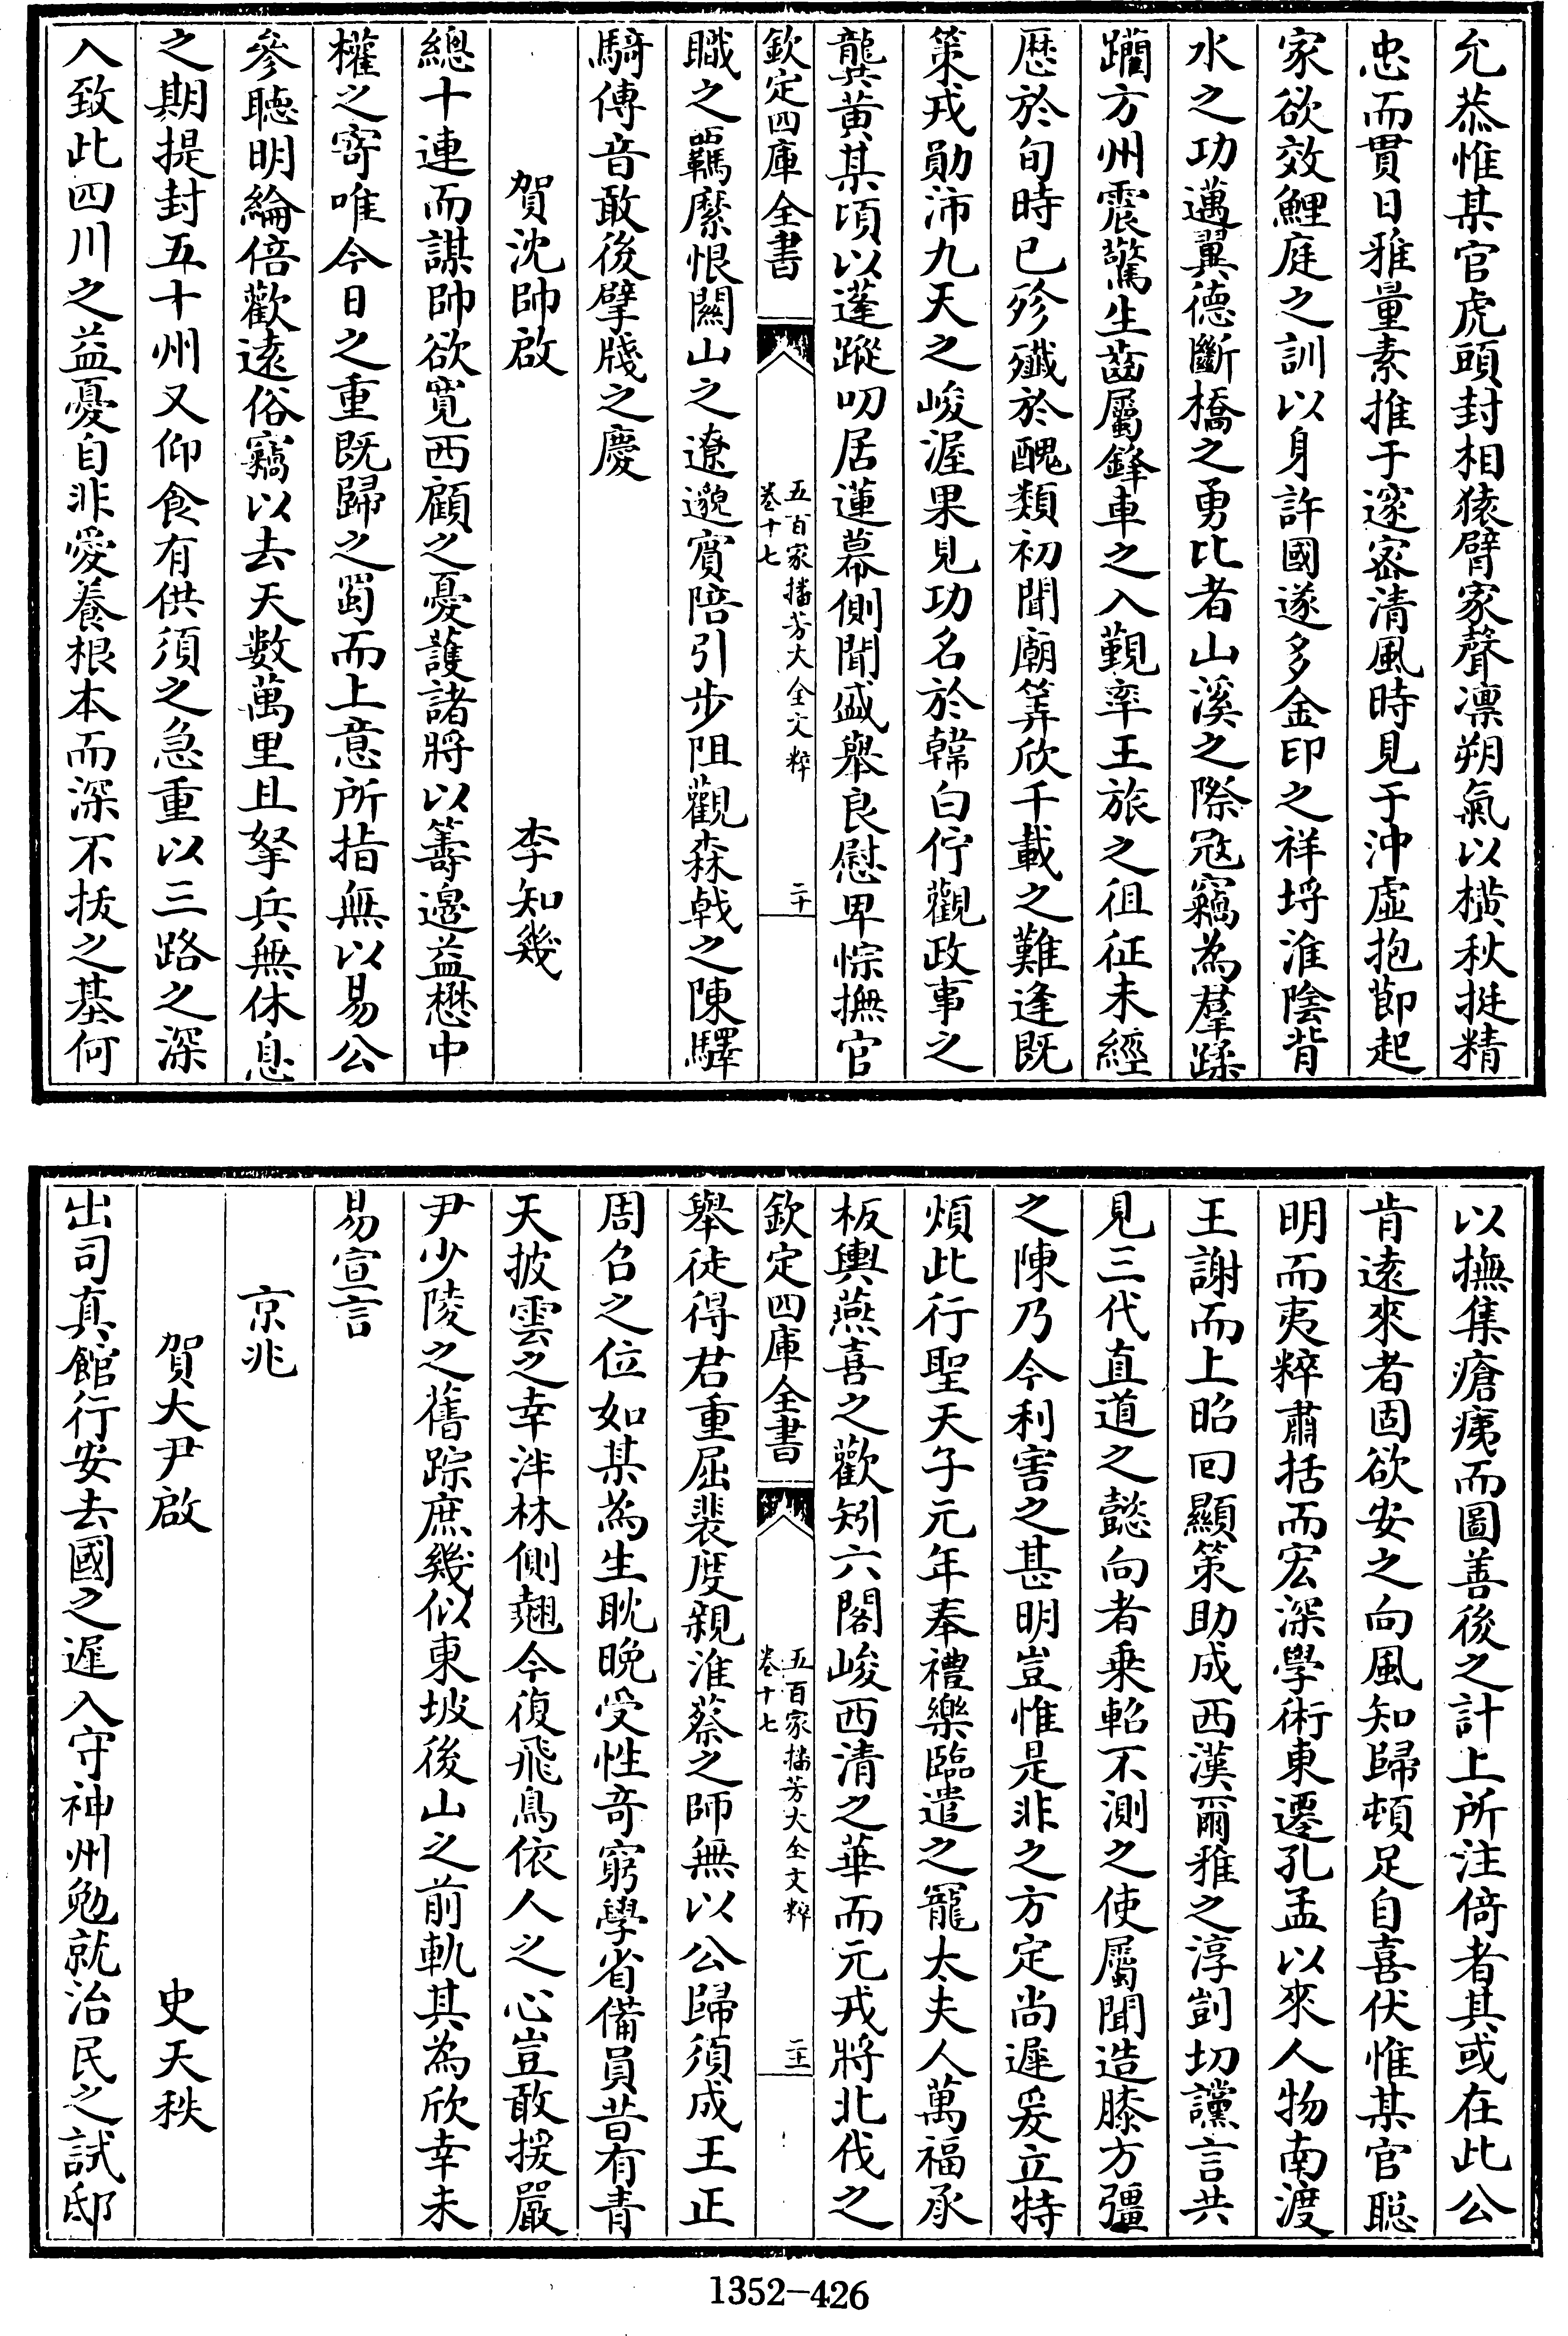 允恭惟某官虎頭封相猿臂家聲凛朔氣以橫秋挺精
忠而貫日雅量素推于邃密清風時見于沖虛抱節起
家欲效鯉庭之訓以身許國遂多金印之祥埒淮陰背
水之功邁翼德斷橋之勇比者山溪之際冦竊為羣蹂
躪方州震驚生齒屬鋒車之入覲率王旅之徂征未經
歴於旬時已殄殲於醜類初聞廟筭欣千載之難逢既
策戎勛沛九天之峻渥果見功名於韓白佇觀政事之
龔黃某頃以蓬蹤叨居蓮幕側聞盛舉良慰卑悰撫官
欽定四庫全書
五百家播芳大全文粹
卷十七
二十
職之羈縻恨關山之遼邈賓陪引步阻觀森戟之陳驛
騎傳音敢後擘牋之慶
賀沈帥啟
李知幾
總十連而謀帥欲寛西顧之憂護諸將以籌邊益懋中
權之寄唯今日之重既歸之蜀而上意所指無以易公
參聴明綸倍歡逺俗竊以去天數萬里且拏兵無休息
之期提封五十州又仰食有供須之急重以三路之深
入致此四川之益憂自非愛養根本而深不抜之基何
以撫集瘡痍而圖善後之計上所注倚者其或在此公
肯逺來者固欲安之向風知歸頓足自喜伏惟某官聡
明而夷粹肅括而宏深學術東遷孔孟以來人物南渡
王謝而上昭回顯策助成西漢爾雅之淳剴切讜言共
見三代直道之懿向者乗軺不測之使屬聞造膝方彊
之陳乃今利害之甚明豈惟是非之方定尚遲爰立特
煩此行聖天子元年奉禮樂臨遣之寵太夫人萬福承
板輿燕喜之歡矧六閣峻西清之華而元戎將北伐之
欽定四庫全書
五百家播芳大全文粹
卷十七
二十一
舉徒得君重屈裴度親淮蔡之師無以公歸須成王正
周召之位如某為生耽晚受性竒窮學省備員昔有青
天披雲之幸泮林側翹今復飛鳥依人之心豈敢援嚴
尹少陵之舊踪庶幾似東坡後山之前軌其為欣幸未
易宣言
京兆
賀大尹啟
史天秩
出司真館行安去國之遲入守神州勉就治民之試邸
1352-426